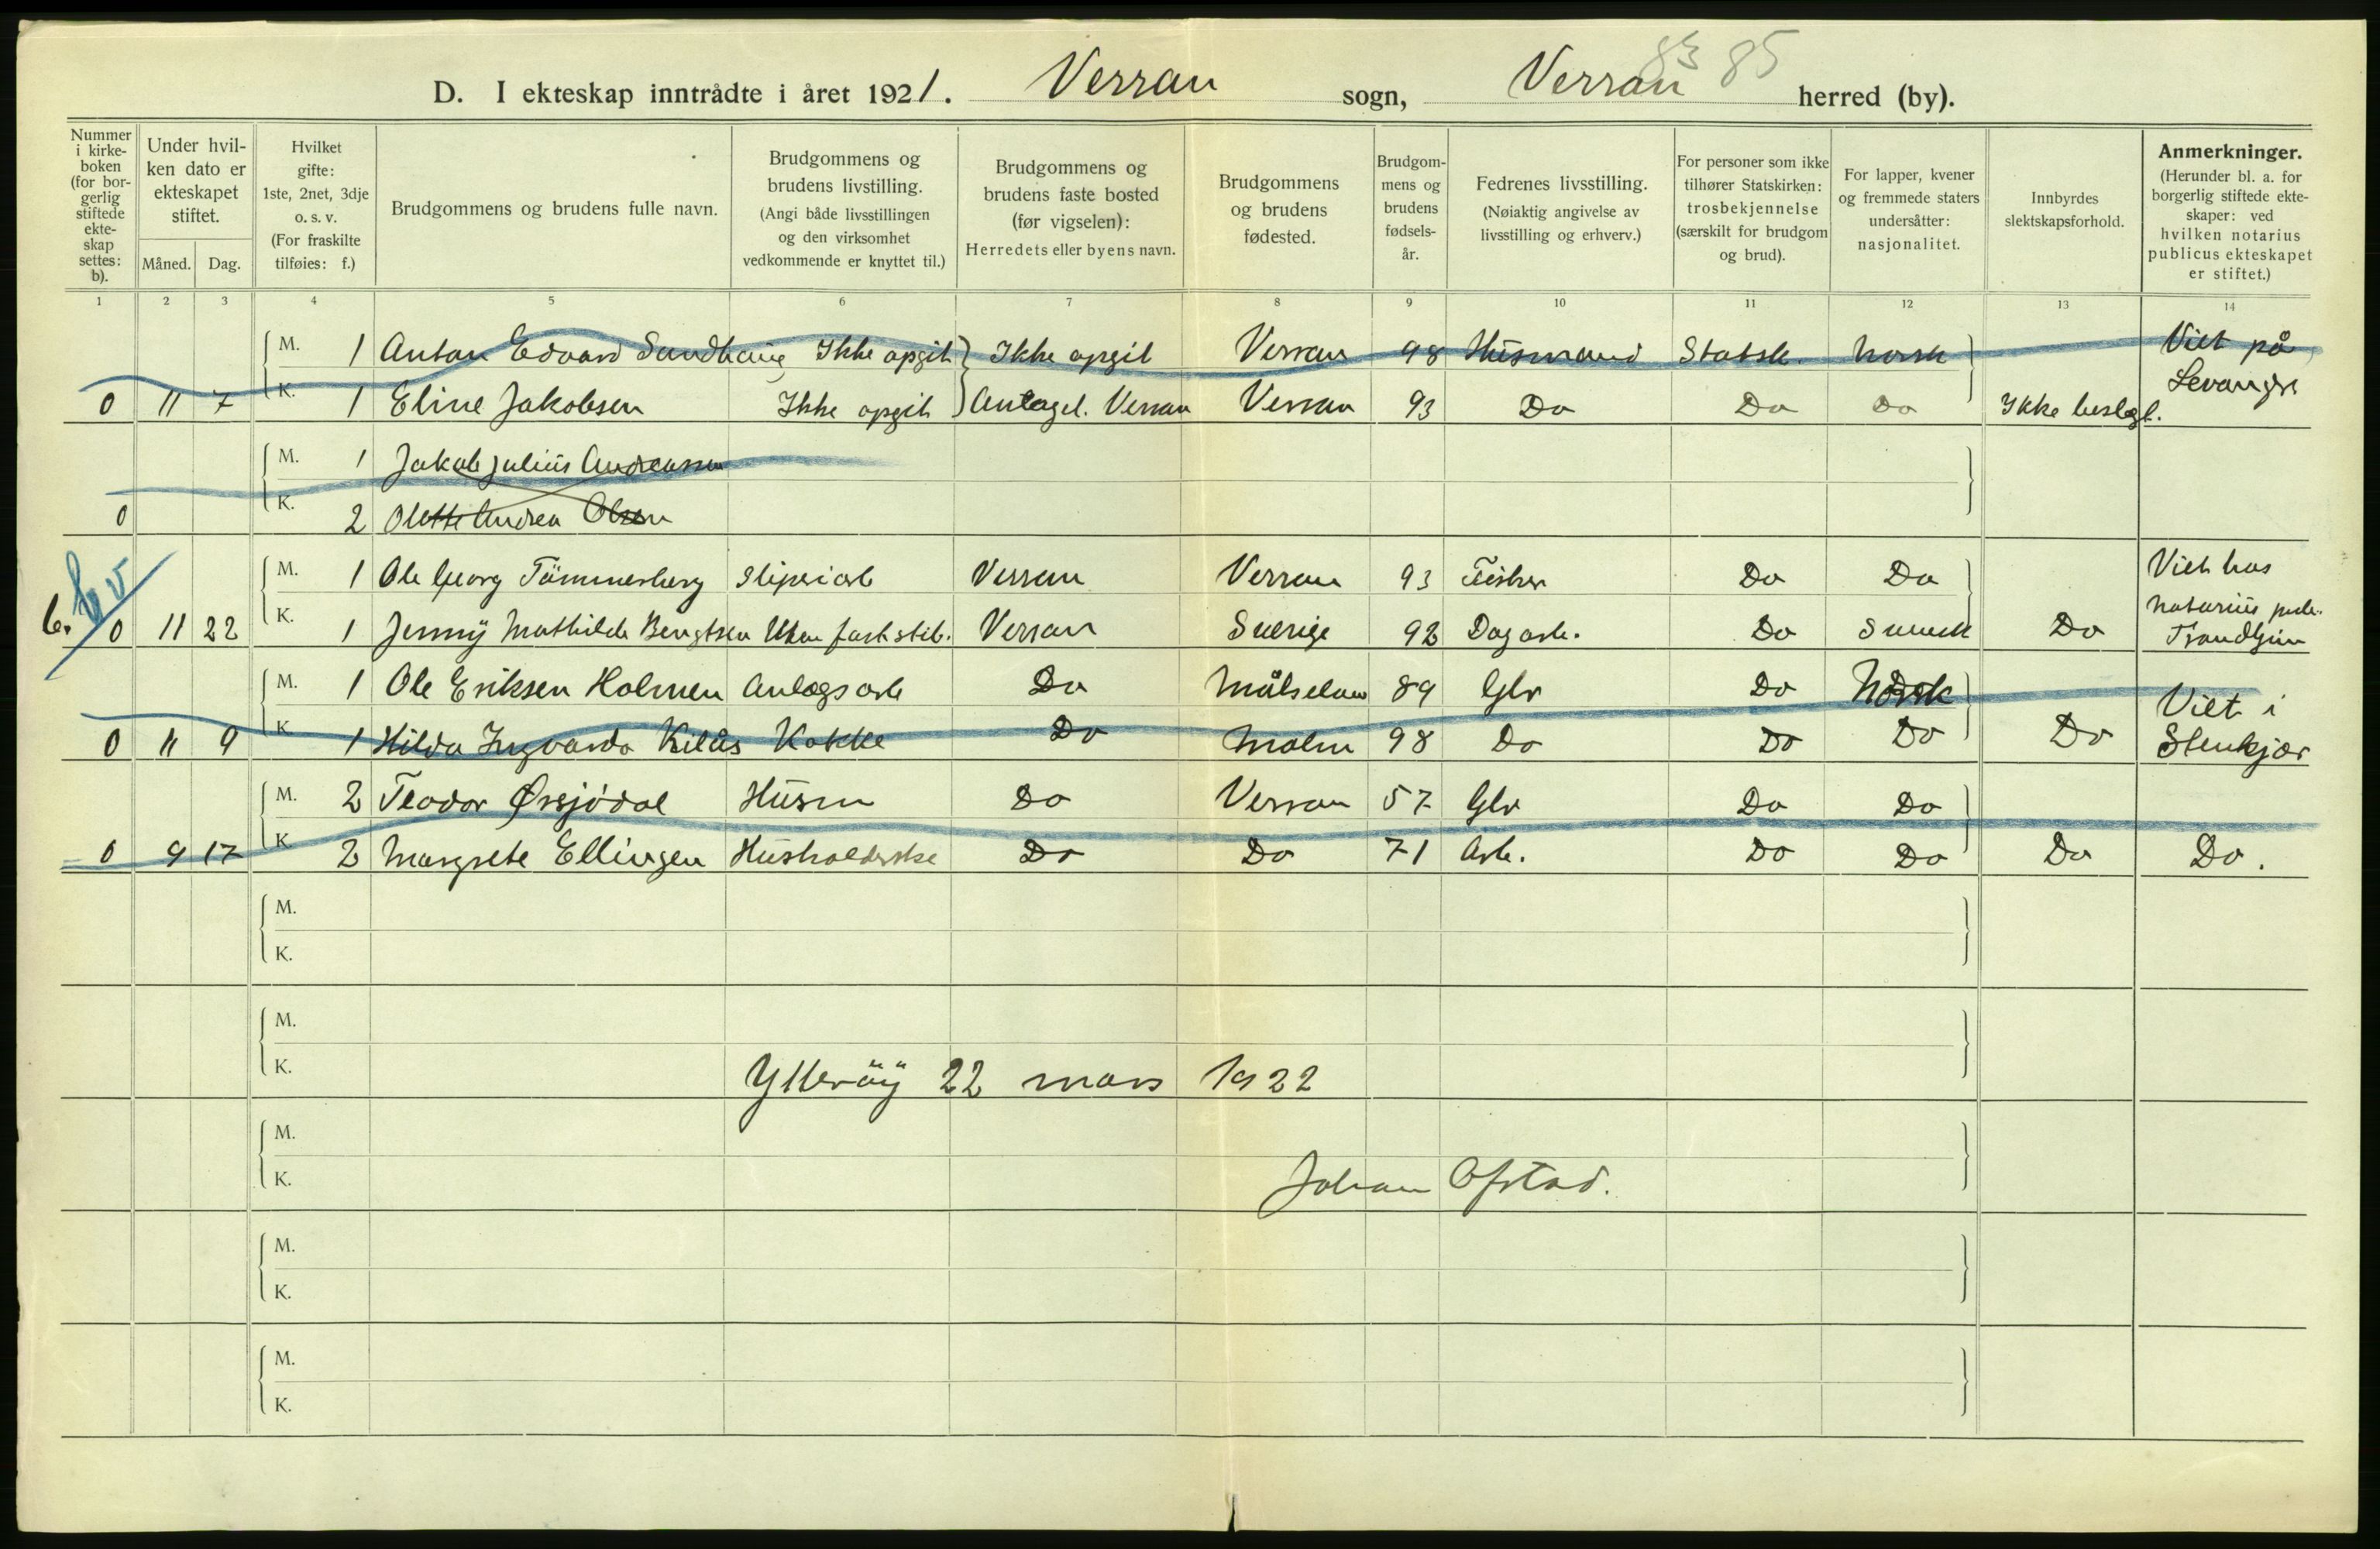 83 85
D. I ekteskap inntrådte i året 1921. Verran sogn, Verran herred (by).
Nummer i kirkeboken (for borgerlig stiftede ekteskap settes: b).
Under hvilken dato er ekteskapet stiftet.
Måned. Dag.
Hvilket gifte: 1ste, 2net, 3dje o. s. v. (For fraskilte tilføies: f.)
Brudgommens og brudens fulle navn.
Brudgommens og brudens livstilling. (Angi både livsstillingen og den virksomhet vedkommende er knyttet til.)
Brudgommens og brudens faste bosted (før vigselen): Herredets eller byens navn.
Brudgommens og brudens fødested.
Brudgommens og brudens fødselsår.
Fedrenes livsstilling. (Nøiaktig angivelse av livsstilling og erhverv.)
For personer som ikke tilhører Statskirken: trosbekjennelse (særskilt for brudgom og brud).
For lapper, kvener og fremmede staters undersåtter: nasjonalitet.
Innbyrdes slektskapsforhold.
Anmerkninger. (Herunder bl. a. for borgerlig stiftede ekteskaper: ved hvilken notarius publicus ekteskapet er stiftet.)
1 2 3 4 5 6 7 8 9 10 11 12 13 14
M. 1 Anton Edvard Sundhaug Ikke opgit Ikke opgit Verran 98 Husmand Statsk. norsk Viet på
0 11 7 K. 1 Eline Jakobsen Ikke opgit Antagel. Verran Verran 93 Do Do Do Ikke beslegt. Levanger
M. 1 Jakob Julius Andreassen
0 K. 2 Olette Andrea Olsen
M. 1 Ole Georg Tömmerberg Sliperiarb Verran Verran 93 Fisker Do Do Viet hos
b. 0 11 22 K. 1 Jenny Mathilde Bengtsen Uten fast stil. Verran Sverige 92 Dagarb. Do Svensk Do notarius pub. Trondhjem
M. 1 Ole Eriksen Holmen Anlægsarb Do Målselven 89 Glr Do Norsk Viet i
0 11 9 K. 1 Hilda Ingvarda Kilås Kokke Do Malm 98 Do Do Do Do Stenkjær
M. 2 Teodor Ørsjödal Husm Do Verran 57 Glr Do Do
0 9 17 K. 2 Margrete Ellingen Husholderske Do Do 71 Arb. Do Do Do Do.
M.
K.
M.
K.
Ytteröy 22 mars 1922
M.
K.
Johan Ofstad.
M.
K.
M.
K.